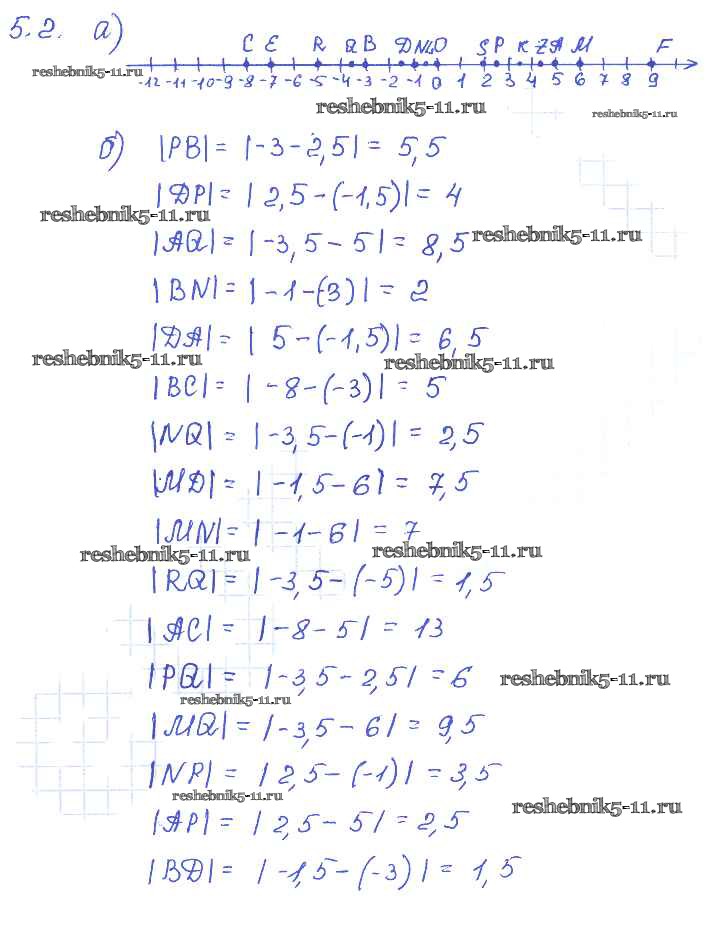 5.2. а)
C E R Q B D N L O S P K Z A M F
-12 -11 -10 -9 -8 -7 -6 -5 -4 -3 -2 -1 0 1 2 3 4 5 6 7 8 9
reshebnik5-11.ru
reshebnik5-11.ru
reshebnik5-11.ru
б) |PB| = |-3-2,5| = 5,5
|DP| = | 2,5-(-1,5)| = 4
reshebnik5-11.ru
|AQ| = |-3,5-5| = 8,5
reshebnik5-11.ru
|BN| = |-1-(3)| = 2
|DA| = | 5-(-1,5)| = 6,5
reshebnik5-11.ru
reshebnik5-11.ru
|BC| = | -8-(-3)| = 5
|NQ| = |-3,5-(-1)| = 2,5
|MD| = |-1,5-6| = 7,5
|MN| = |-1-6| = 7
reshebnik5-11.ru
reshebnik5-11.ru
|RQ| = |-3,5-(-5)| = 1,5
|AC| = |-8-5| = 13
|PQ| = |-3,5-2,5| = 6
reshebnik5-11.ru
reshebnik5-11.ru
|MQ| = |-3,5-6| = 9,5
|NP| = | 2,5-(-1)| = 3,5
reshebnik5-11.ru
reshebnik5-11.ru
|AP| = | 2,5-5| = 2,5
|BD| = | -1,5-(-3)| = 1,5